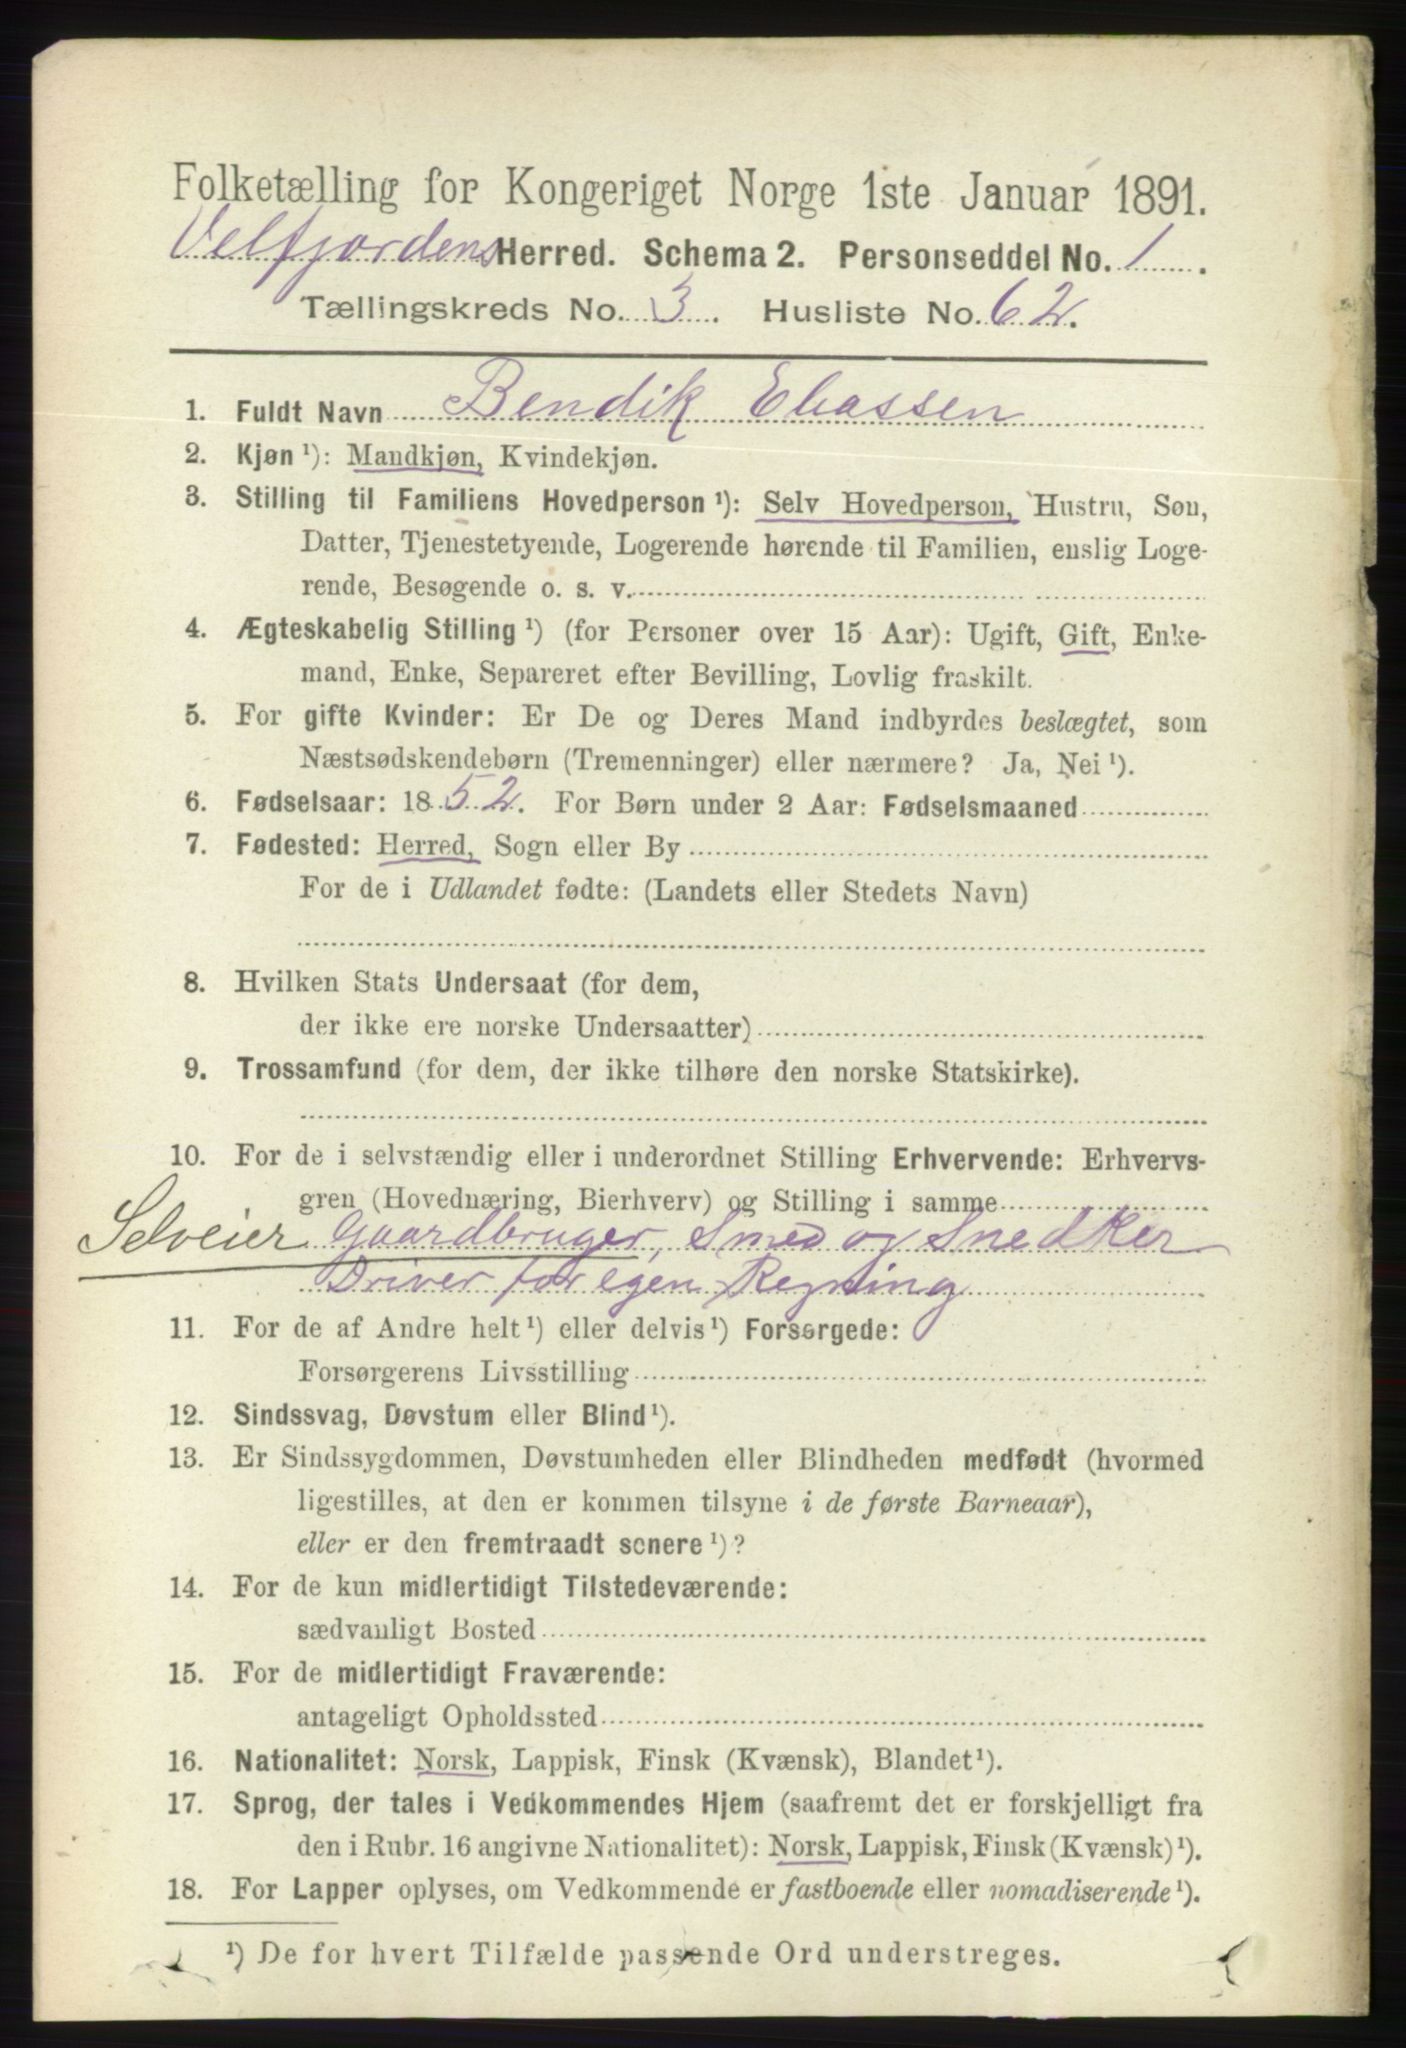 Folketælling for Kongeriget Norge 1ste Januar 1891.
Velfjordens Herred. Schema 2. Personseddel No. 1.
Tællingskreds No. 3. Husliste No. 62.
1. Fuldt Navn Bendik Eliassen
2. Kjøn ¹): Mandkjøn, Kvindekjøn.
3. Stilling til Familiens Hovedperson ¹): Selv Hovedperson, Hustru, Søn,
Datter, Tjenestetyende, Logerende hørende til Familien, enslig Loge-
rende, Besøgende o. s. v.
4. Ægteskabelig Stilling ¹) (for Personer over 15 Aar): Ugift, Gift, Enke-
mand, Enke, Separeret efter Bevilling, Lovlig fraskilt.
5. For gifte Kvinder: Er De og Deres Mand indbyrdes beslægtet, som
Næstsødskendebørn (Tremenninger) eller nærmere? Ja, Nei ¹).
6. Fødselsaar: 1852. For Børn under 2 Aar: Fødselsmaaned
7. Fødested: Herred, Sogn eller By
For de i Udlandet fødte: (Landets eller Stedets Navn)
8. Hvilken Stats Undersaat (for dem,
der ikke ere norske Undersaatter)
9. Trossamfund (for dem, der ikke tilhøre den norske Statskirke).
10. For de i selvstændig eller i underordnet Stilling Erhvervende: Erhvervs-
gren (Hovednæring, Bierhverv) og Stilling i samme
Selveier Gaardbruger, Smed og Snedker
Driver for egen Regning
11. For de af Andre helt ¹) eller delvis ¹) Forsørgede:
Forsørgerens Livsstilling
12. Sindssvag, Døvstum eller Blind ¹).
13. Er Sindssygdommen, Døvstumheden eller Blindheden medfødt (hvormed
ligestilles, at den er kommen tilsyne i de første Barneaar),
eller er den fremtraadt senere ¹)?
14. For de kun midlertidigt Tilstedeværende:
sædvanligt Bosted
15. For de midlertidigt Fraværende:
antageligt Opholdssted
16. Nationalitet: Norsk, Lappisk, Finsk (Kvænsk), Blandet ¹).
17. Sprog, der tales i Vedkommendes Hjem (saafremt det er forskjelligt fra
den i Rubr. 16 angivne Nationalitet): Norsk, Lappisk, Finsk (Kvænsk) ¹).
18. For Lapper oplyses, om Vedkommende er fastboende eller nomadiserende ¹).
¹) De for hvert Tilfælde passende Ord understreges.